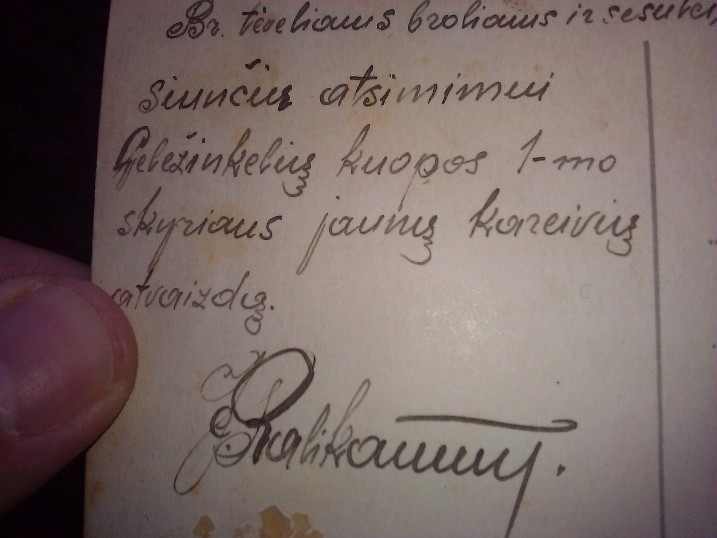 Br. tėveliams broliams ir sesutei,
siunčiu atsiminimui
Geležinkelių kuopos 1-mo
skyriaus jaunų kareivių
atvaizdą.